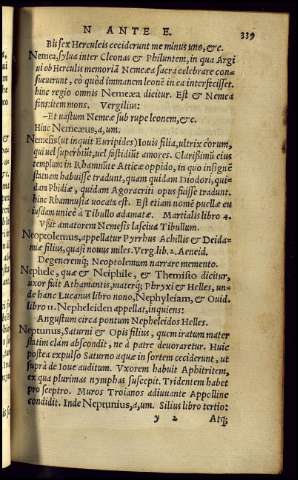 N ANTE E. 339
Bis sex Herculeis ceciderunt me minus uno, &c.
Nemea, sylua inter Cleonas & Philuntem, in qua Argi
ui ob Herculis memoriã Nemeæa sacra celebrare con-
sueuerunt, eò quòd immanem leonẽ in ea interfecisset.
hinc regio omnis Nemeæa dicitur. Est & Nemea
fons: item mons. Vergilius:
–Et uastum Nemeæ sub rupe leonem, &c.
Hinc Nemeæus, a, um.
Nemesis (ut inquit Euripides) Iouis filia, ultrix eorum,
qui uel superbiũt, uel fastidiũt amores. Clarissimũ eius
templum in Rhamnūte Atticæ oppido, in quo insignẽ
statuam habuisse tradunt, quam quidam Diodori, qui-
dam Phidiæ, quidam Agoracriti opus fuisse tradunt.
hinc Rhamnusia uocata est. Est etiam nomē puellæ eu
iusdam unicè à Tibullo adamatæ. Martialis libro 4.
Vssit amatorem Nemesis lasciua Tibullum.
Neoptolemus, appellatur Pyrrhus Achillis & Deida-
miæ filius, quasi nouus miles. Verg. lib. 2. Aeneid.
Degeneremq; Neoptolemum narrare memento.
Nephele, quæ & Neiphile, & Themisto dicitur,
uxor fuit Athamantis, materq; Phryxi & Helles, un-
de hanc Lucanus libro nono, Nephyleïam, & Ouid.
libro 11. Nepheleiden appellat, inquiens:
Angustum circa pontum Nepheleidos Helles.
Neptunus, Saturni & Opis filius, quem iratum mater
statim clàm abscondit, ne à patre deuoraretur. Huic
postea expulso Saturno aquæ in sortem ceciderunt, ut
suprà de Ioue auditum. Vxorem habuit Aphitritem,
ex qua plurimas nymphas suscepit. Tridentem habet
pro sceptro. Muros Troianos adiuuante Appolline
condidit. Inde Neptunius, a, um. Silius libro tertio:
y 2 Atq;